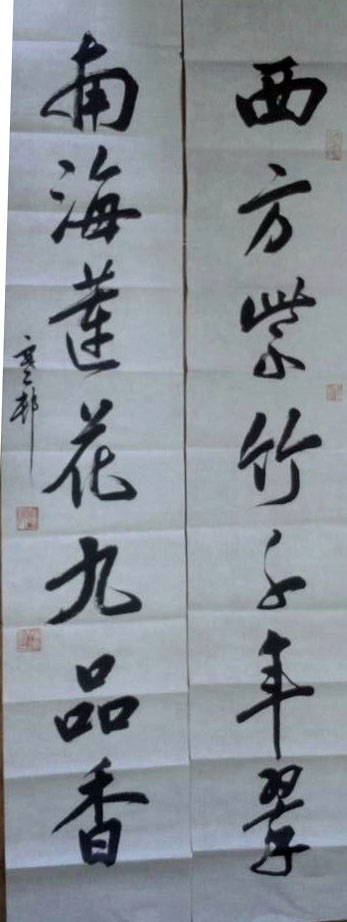 西方紫竹千年翠
南海蓮花九品香